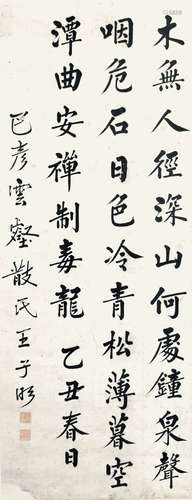 木無人徑深山何處鐘泉聲
咽危石日色冷青松薄暮空
潭曲安禪制毒龍 乙丑春日
彥雲壑散氏王子